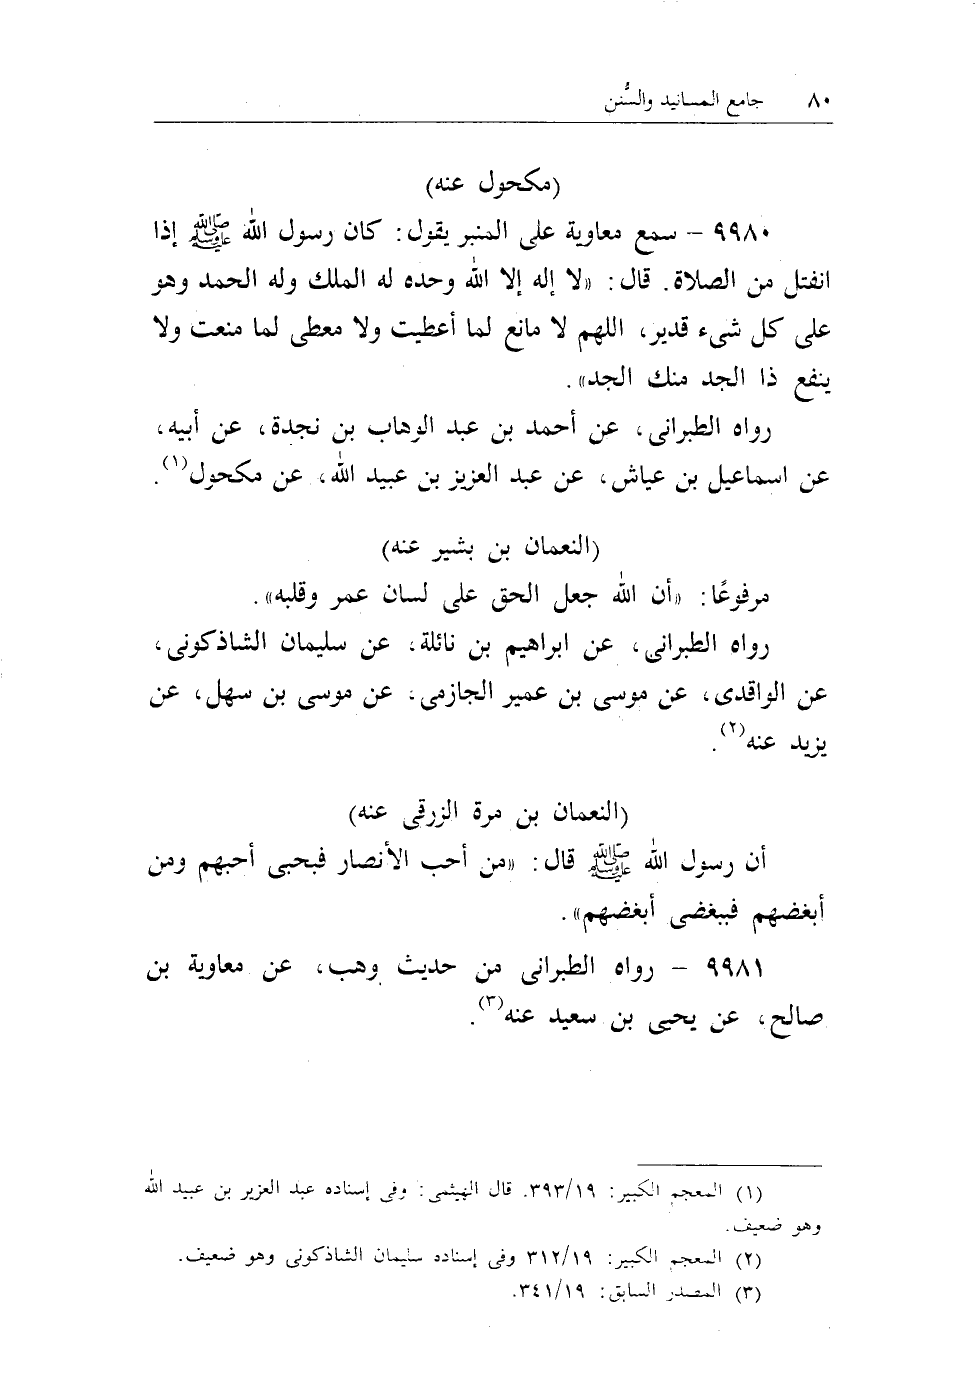 ٨٠ جامع المسانيد والسُّنن
(مكحول عنه)
٩٩٨٠ - سمع معاوية على المنبر يقول: كان رسول الله ﷺ إذا
انفتل من الصلاة. قال: «لا إله إلا الله وحده له الملك وله الحمد وهو
على كل شىء قدير، اللهم لا مانع لما أعطيت ولا معطى لما منعت ولا
ينفع ذا الجد منك الجد».
رواه الطبرانى، عن أحمد بن عبد الوهاب بن نجدة، عن أبيه،
عن اسماعيل بن عياش، عن عبد العزيز بن عبيد الله، عن مكحول(١).
(النعمان بن بشير عنه)
مرفوعًا: «أن الله جعل الحق على لسان عمر وقلبه».
رواه الطبرانى، عن ابراهيم بن نائلة، عن سليمان الشاذكونى،
عن الواقدى، عن موسى بن عمير الجازمى. عن موسى بن سهل، عن
يزيد عنه(٢).
(النعمان بن مرة الزرقى عنه)
أن رسول الله ﷺ قال: «من أحب الأنصار فبحبى أحبهم ومن
أبغضهم فببغضى أبغضهم».
٩٩٨١ - رواه الطبرانى من حديث وهب، عن معاوية بن
صالح، عن يحيى بن سعيد عنه(٣).
(١) المعجم الكبير: ٣٩٣/١٩. قال الهيثمى: وفى إسناده عبد العزيز بن عبيد الله
وهو ضعيف.
(٢) المعجم الكبير: ٣١٢/١٩ وفى إسناده سليمان الشاذكونى وهو ضعيف.
(٣) المصدر السابق: ٣٤١/١٩.